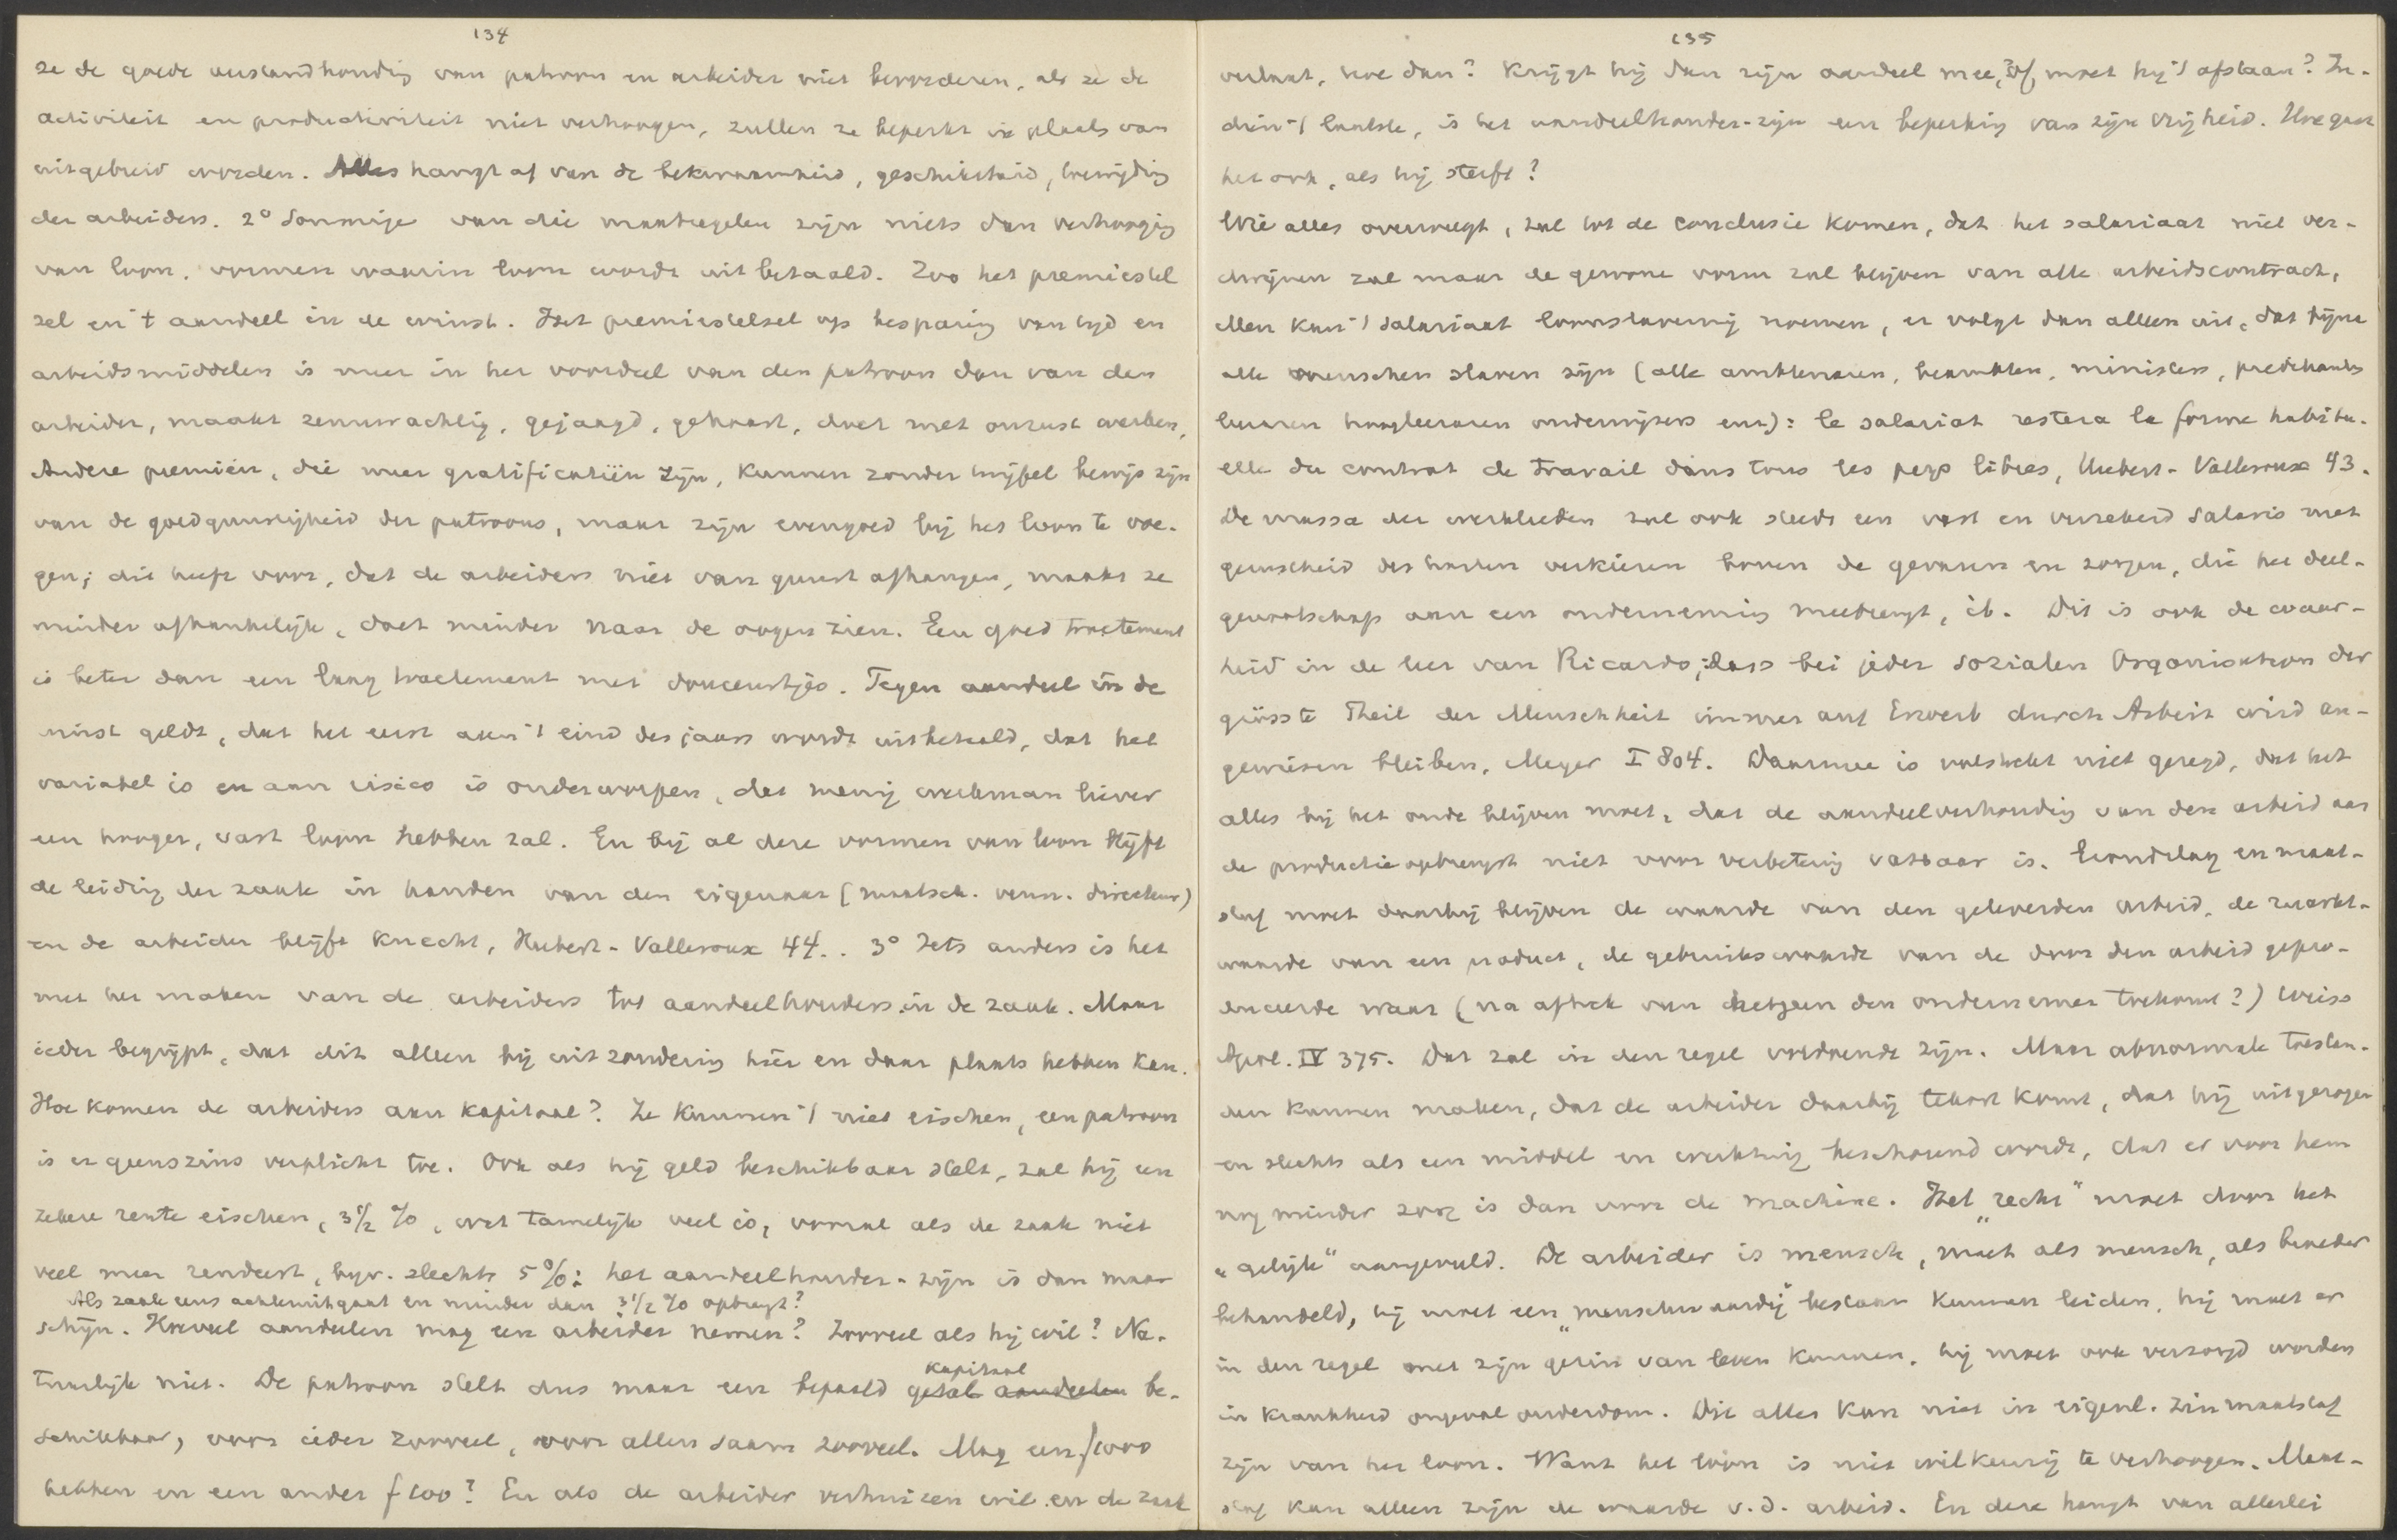 134
ze de goede verstandhouding van patroon en arbeider niet bevorderen, als ze de
activiteit en productiviteit niet verhoogen, zullen ze beperkt in plaats van
uitgebreid worden. Alles hangt af van de bekwaamheid, geschiktheid, toewijding
der arbeiders. 2° Sommige van die maatregelen zijn niets dan verhooging
van loon, vormen waarin loon wordt uitbetaald. Zoo het premiestel
sel en 't aandeel in de winst. Het premiestelsel op besparing van tijd en
arbeidsmiddelen is meer in het voordeel van den patroon dan van den
arbeider, maakt zenuwachtig, gejaagd, gehaast, doet met onrust werken.
Andere premiën, die meer gratificatiën zijn, kunnen zonder twijfel bewijs zijn
van de goedgunstigheid der patroons, maar zijn evengoed bij het loon te voe-
gen; dit heeft voor, dat de arbeiders niet van gunst afhangen, maakt ze
minder afhankelijk, doet minder naar de oogen zien. Een goed tractement
is beter dan een laag tractement met douceurtjes. Tegen aandeel in de
winst geldt, dat het eerst aan 't eind des jaars wordt uitbetaald, dat het
variabel is en aan risico is onderworpen, dat menig werkman liever
een hooger, vast loon hebben zal. En bij al deze vormen van loon blijft
de leiding der zaak in handen van den eigenaar (maatsch. venn. directeur)
en de arbeider blijft knecht, Hubert-Valleroux 44.. 3° Iets anders is het
met het maken van de arbeiders tot aandeelhouders in de zaak. Maar
ieder begrijpt, dat dit alleen bij uitzondering hier en daar plaats hebben kan.
Hoe komen de arbeiders aan kapitaal? Ze kunnen 't niet eischen, een patroon
is er geenszins verplicht toe. Ook als hij geld beschikbaar stelt, zal hij een
zekere rente eischen, 3½ %, wat tamelijk veel is, vooral als de zaak niet
veel meer rendeert, bijv. slechts 5 %: het aandeelhouder-zijn is dan maar
Als zaak eens achteruitgaat en minder dan 3½ % opbrengt?
schijn. Hoeveel aandeelen mag een arbeider nemen? Zooveel als hij wil? Na-
kapitaal
tuurlijk niet. De patroon stelt dus maar een bepaald getal aandeelen be-
schikbaar, voor ieder zooveel, voor allen saam zooveel. Mag een f1000
hebben en een ander f 100? En als de arbeider verhuizen wil en de zaak
135
verlaat, hoe dan? Krijgt hij dan zijn aandeel mee? Of moet hij 't afstaan? In-
dien 't laatste, is het aandeelhouder-zijn een beperking van zijn vrijheid. Hoe gaat
het ook, als hij sterft?
Wie alles overweegt, zal tot de conclusie komen, dat het salariaat niet ver-
dwijnen zal maar de gewone vorm zal blijven van alle arbeidscontract.
Men kan 't salariaat loonslavernij noemen, er volgt dan alleen uit, dat bijna
alle menschen slaven zijn (alle ambtenaren, beambten, ministers, predikants
leeraren hoogleeraren onderwijzers enz): le salariat restera la forme habitu-
elle du contrat de travail dans tous les pays libres, Hubert-Valleroux 43.
De massa der werklieden zal ook steeds een vast en verzekerd salaris met
gerustheid des harten verkiezen boven de gevaren en zorgen, die het deel-
genootschap aan een onderneming meebrengt, ib. Dit is ook de waar-
heid in de leer van Ricardo; dass bei jeder sozialen Organisation der
grösste Theil der Menschheit immer auf Erwerb durch Arbeit wird an-
gewiesen bleiben, Meyer I 804. Daarmee is volstrekt niet gezegd, dat het
alles bij het oude blijven moet, dat de aandeelverhouding van den arbeid aan
de productieopbrengst niet voor verbetering vatbaar is. Grondslag en maat-
staf moet daarbij blijven de waarde van den geleverden arbeid, de markt-
waarde van een product, de gebruikswaarde van de door den arbeid gepro-
duceerde waar (na aftrek van hetgeen den ondernemer toekomt?) Weiss
Apol. IV 375. Dat zal in den regel voldoende zijn. Maar abnormale toestan-
den kunnen maken, dat de arbeider daarbij tekort komt, dat hij uitgezogen
en slechts als een middel en werktuig beschouwd wordt, dat er voor hem
nog minder zorg is dan voor de machine. Het „recht" moet door het
„gelijk" aangevuld. De arbeider is mensch, moet als mensch, als broeder
behandeld, hij moet een „menschwaardig" bestaan kunnen leiden, hij moet er
in den regel met zijn gezin van leven kunnen, hij moet ook verzorgd worden
in krankheid ongeval ouderdom. Dit alles kan niet in eigenl. zin maatstaf
zijn van het loon. Want het loon is niet willekeurig te verhoogen. Maat-
staf kan alleen zijn de waarde v.d. arbeid. En deze hangt van allerlei